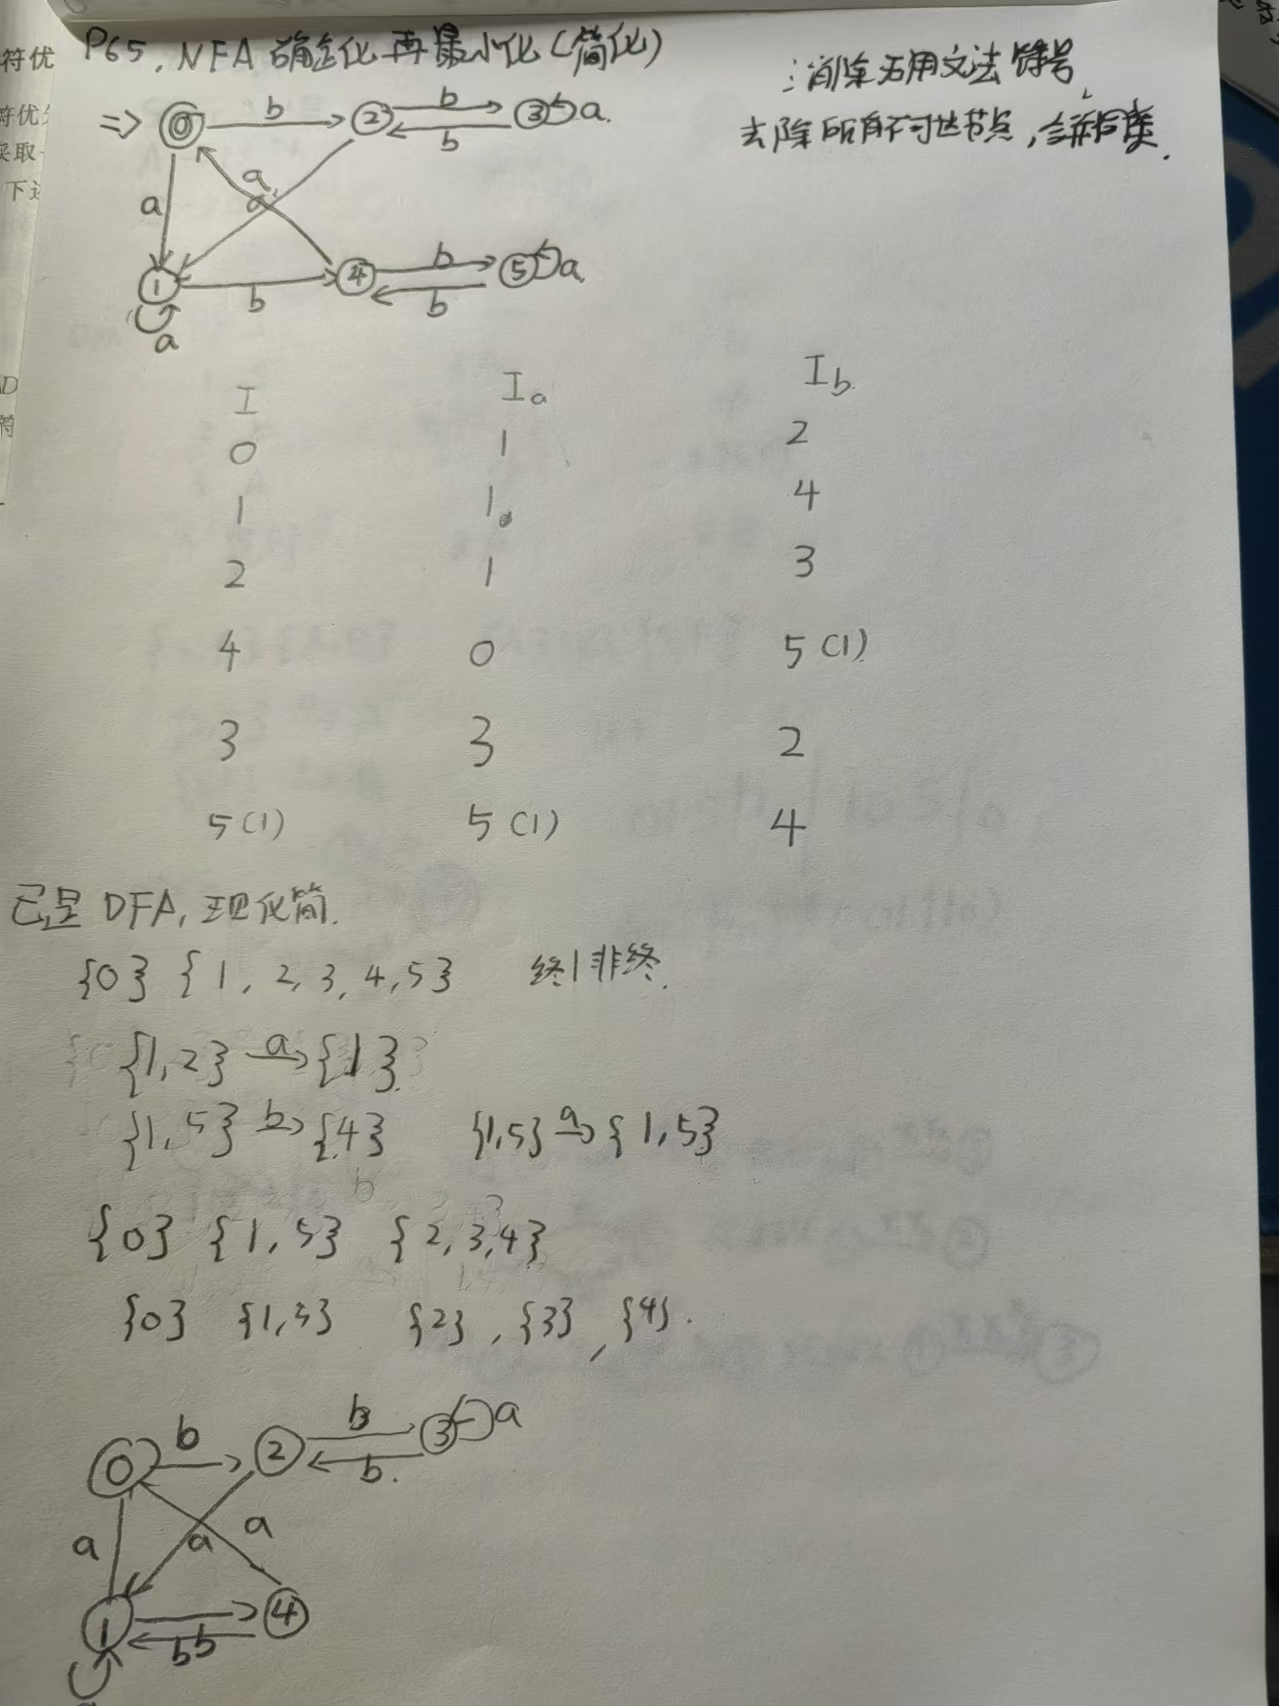 符优
符优
采取
下述
P65, NFA 确定化 再最小化(简化)
:消除无用文法符号
去除所有不可达节点,合并同类.
⇒ 0 b 2 b 3 a.
b
a a a
1 b 4 b 5 a
b
a
AD
符
I Ia Ib
0 1 2
1 1 4
2 1 3
4 0 5(1)
3 3 2
5(1) 5(1) 4
已是 DFA, 现化简.
{0} {1, 2, 3, 4, 5} 终|非终.
{1, 2} a→ {1}
{1, 5} b→ {4} {1,5} a→ {1, 5}
{0} {1, 5} {2, 3, 4}
{0} {1, 5} {2}, {3}, {4}.
0 b 2 b 3 a
b.
a a a
1 b b 4
a